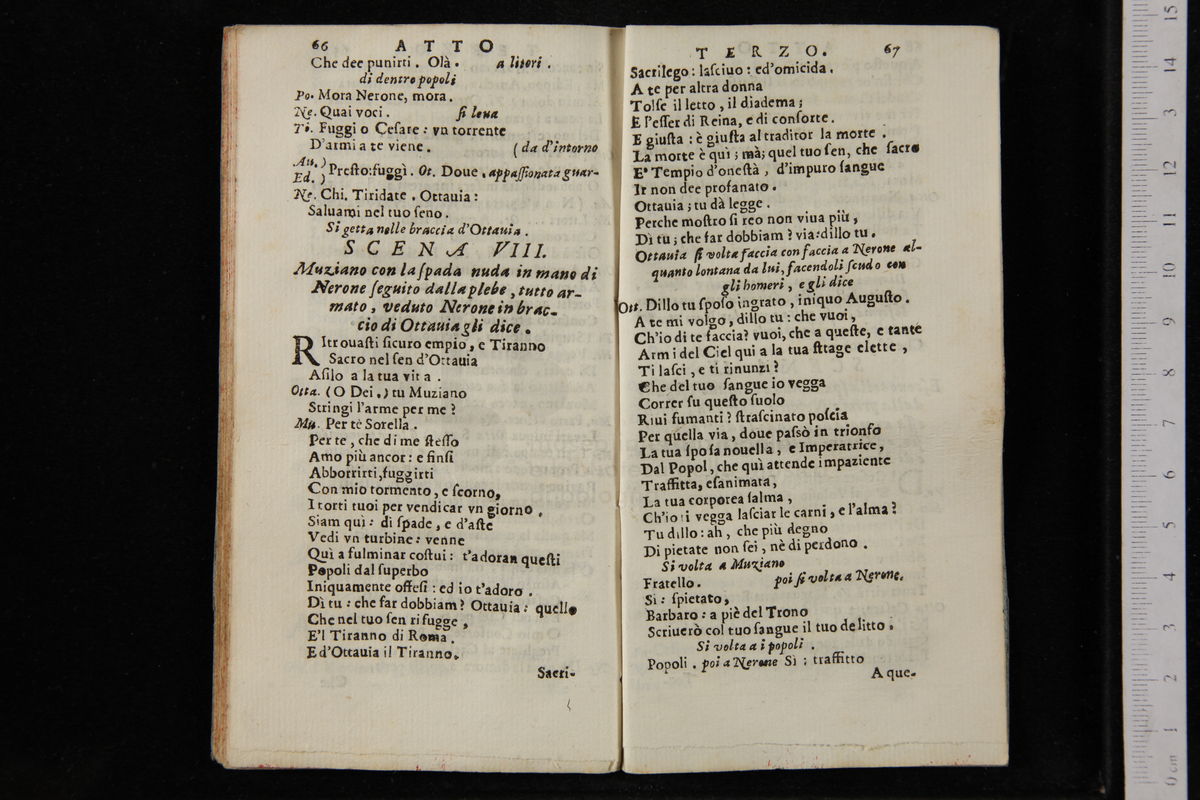 66 ATTO
Che dee punirti. Olà. a litori.
di dentro popoli
Po. Mora Nerone, mora.
Ne. Quai voci. ſi leua
Ti. Fuggi o Ceſare: vn torrente
D'armi a te viene. (da d'intorno
Au.)
Ed.) Preſto: fuggì. Ot. Doue. appaſſionata guar-
Ne. Chi. Tiridate. Ottauia:
Saluami nel tuo ſeno.
Si getta nelle braccia d'Ottauia.
SCENA VIII.
Muziano con la ſpada nuda in mano di
Nerone ſeguito dalla plebe, tutto ar-
mato, veduto Nerone in brac-
cio di Ottauia gli dice.
RItrouaſti ſicuro empio, e Tiranno
Sacro nel ſen d'Ottauia
Aſilo a la tua vita.
Otta. (O Dei.) tu Muziano
Stringi l'arme per me?
Mu. Per te Sorella.
Per te, che di me ſteſſo
Amo più ancor: e finſi
Abborrirti, fuggirti
Con mio tormento, e ſcorno,
I torti tuoi per vendicar vn giorno.
Siam quì: di ſpade, e d'aſte
Vedi vn turbine: venne
Quì a fulminar coſtui: t'adoran queſti
Popoli dal ſuperbo
Iniquamente offeſi: ed io t'adoro.
Dì tu: che far dobbiam? Ottauia: quello
Che nel tuo ſen rifugge,
E'l Tiranno di Roma.
E d'Ottauia il Tiranno.
Sacri-
TERZO. 67
Sacrilego: laſciuo: ed'omicida.
A te per altra donna
Tolſe il letto, il diadema;
E l'eſſer di Reina, e di conſorte.
E giuſta: è giuſta al traditor la morte.
La morte è quì; mà; quel tuo ſen, che ſacro
E' Tempio d'oneſtà, d'impuro ſangue
Ir non dee profanato.
Ottauia; tu dà legge.
Perche moſtro ſi reo non viua più,
Dì tu; che far dobbiam? via: dillo tu.
Ottauia ſi volta faccia con faccia a Nerone al-
quanto lontana da lui, facendoli ſcudo con
gli homeri, e gli dice
Ott. Dillo tu ſpoſo ingrato, iniquo Auguſto.
A te mi volgo, dillo tu: che vuoi,
Ch'io di te faccia? vuoi, che a queſte, e tante
Armi del Ciel qui a la tua ſtrage elette,
Ti laſci, e ti rinunzi?
Che del tuo ſangue io vegga
Correr ſu queſto ſuolo
Riui fumanti? ſtraſcinato poſcia
Per quella via, doue paſsò in trionfo
La tua ſpoſa nouella, e Imperatrice,
Dal Popol, che quì attende impaziente
Traffitta, eſanimata,
La tua corporea ſalma,
Ch'io ti vegga laſciar le carni, e l'alma?
Tu dillo: ah, che più degno
Di pietate non ſei, nè di perdono.
Si volta a Muziano
Fratello. poi ſi volta a Nerone.
Sì: ſpietato,
Barbaro: a piè del Trono
Scriuerò col tuo ſangue il tuo delitto.
Si volta a i popoli.
Popoli. poi a Nerone Sì: traffitto
A que-
15
14
13
12
11
10
9
8
7
6
5
4
3
2
1
0 cm